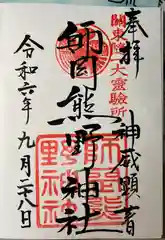 奉拝
關東随一大霊験所
神威顕著
師岡熊野神社
師岡熊
野神社
令和六年九月二十八日